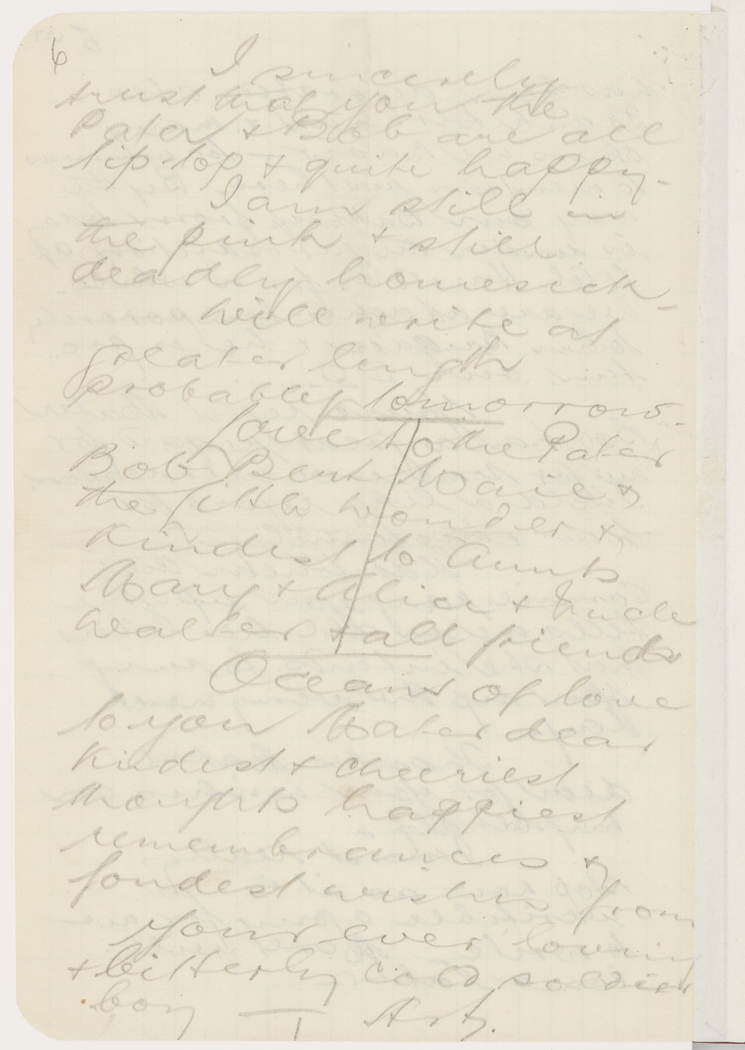 6
I sincerely
trust that you the
Pater & Bob are all
tip-top & quite happy-
I am still in
the pink & still
deadly homesick-
Will write at
greater length
probably tomorrow.
Love to the Pater
Bob Bert Marie &
the little wonder &
kindest to Aunts
Mary & Alice & Uncle
Walter & all friends
Oceans of love
to you Mater dear
kindest & cheeriest
thoughts happiest
remembrances &
fondest wishes from
Your ever loving
& bitterly cold soldier
boy — Art.